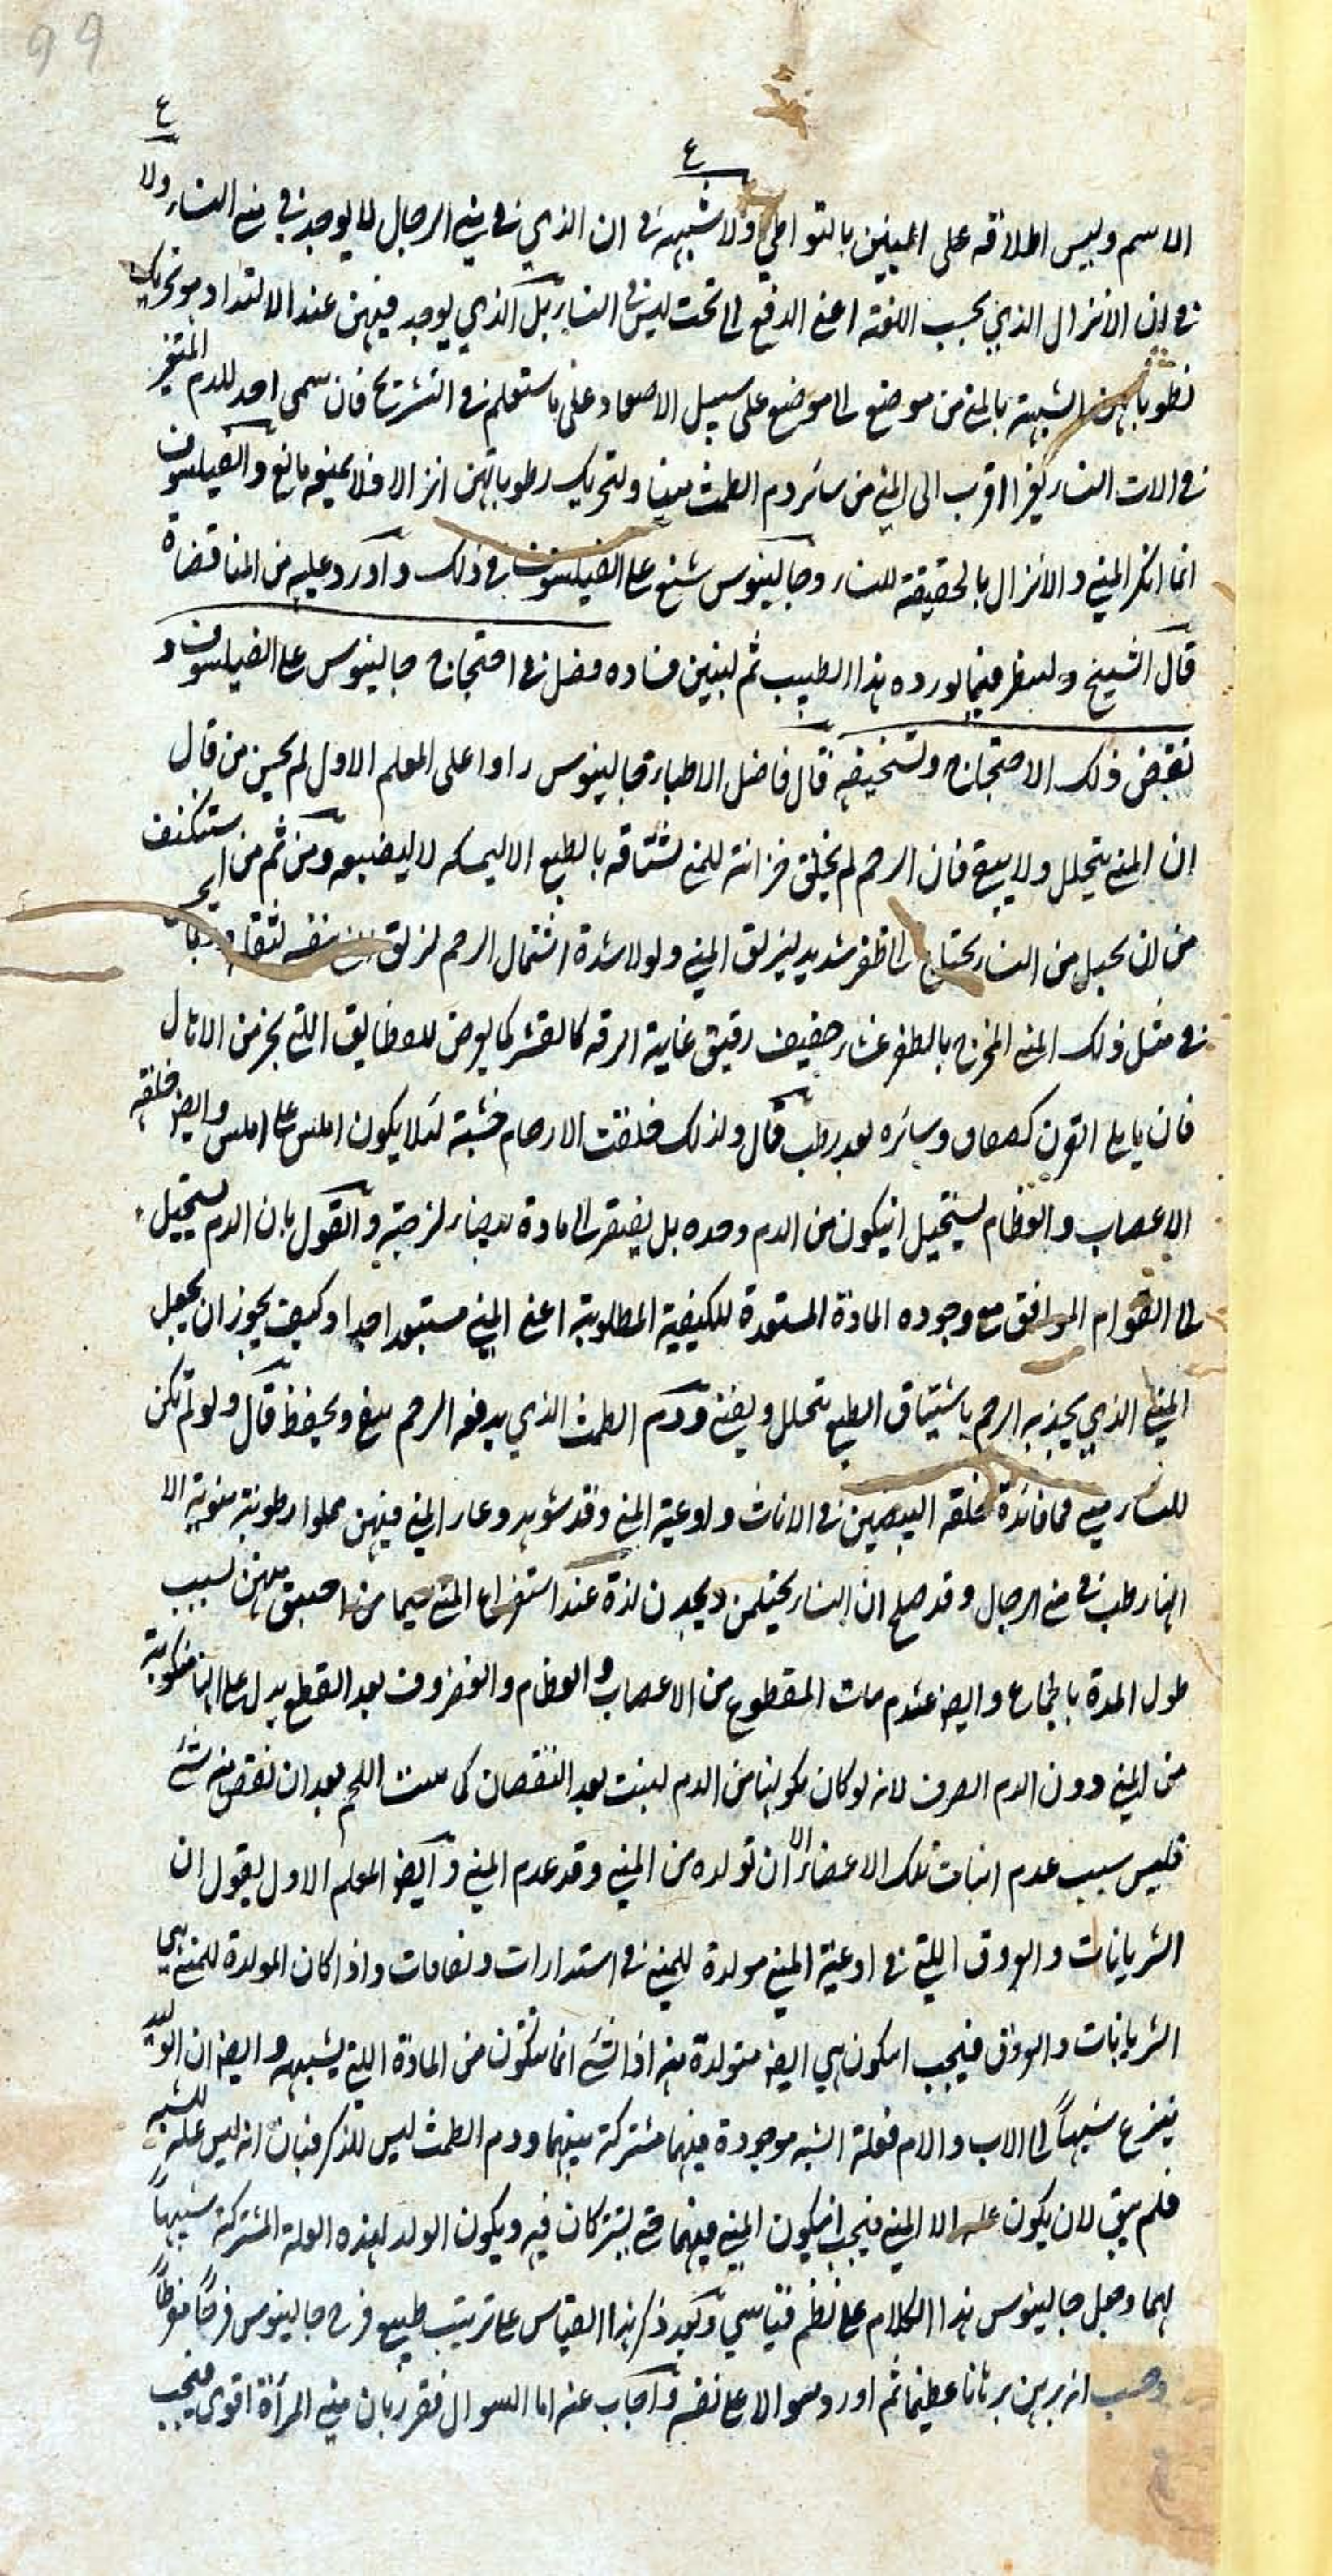 99
ع
ع
الاسم وليس اطلاقه على المنيين بالتواطي ولا شبهة في ان الذي في مني الرجال لا يوجد في مني النساء ولا
في ان الانزال الذي بحسب اللغة اعني الدفع الى تحت ليس في النساء بل الذي يوجد فيهن عند الالتذاذ هو تحريك
لرطوباتهن الشبيهة بالمني من موضع الى موضع على سبيل الاصعاد على ما ستعلم في التشريح فان سمى احد للدم المتغير
في الات النساء تغيرا اقرب الى المني من سائر دم الطمث منيا ولتحريك رطوباتهن انزالا فلا يمنعه مانع والفيلسوف
انما انكر المني والانزال بالحقيقة للنساء وجالينوس شنع على الفيلسوف في ذلك واورد عليه من المناقضة
قال الشيخ ولننظر فيما يورده هذا الطبيب ثم لنبين فساده فصل في احتجاج جالينوس على الفيلسوف و
نقيض ذلك الاحتجاج وتسخيفه قال فاضل الاطباء جالينوس رادا على المعلم الاول لم يحسن من قال
ان المني يتحلل ولا يبقى فان الرحم لم يخلق خزانة للمني تشتاقه بالطبع الا ليمسكه لا ليضيعه ومن ثم من استنكف
من ان يحبل من النساء يحتاج الى ظفر شديد ليزلق المني ولولا شدة اشتمال الرحم لزلق المني بنفسه لثقله
في مثل ذلك المني المخرج بالطفر غشاء خفيف رقيق غاية الرقة كالقشر كما يعرض
فان ما يلي القرن وسائره بعد رطب قال ولذلك خلقت الارحام خشنة لئلا يكون املس على املس وايضا خلقة
الاعصاب والعظام يستحيل ان يكون من الدم وحده بل يفتقر الى مادة بيضاء لزجة والقول بان الدم يستحيل
الى القوام الموافق مع وجوده المادة المستعدة للكيفية المطلوبة اعني المني مستبعد جدا وكيف يجوز ان يجعل
المني الذي يجذبه الرحم باشتياق الطبع يتحلل ويفنى ودم الطمث الذي يدفعه الرحم يبقى ويحفظ قال ولو لم تكن
للنساء مني فما فائدة خلقة البيضتين في الاناث واوعية المني وقد شوهد وعاء المني فيهن مملوا رطوبة منوية الا
انها رطب من مني الرجال وقد صح ان النساء يحتلمن ويجدن لذة عند استفراغ المني سيما من بهن بسبب
طول المدة بالجماع وايضا عدم نبات المقطوع من الاعصاب والعظام والغضروف بعد القطع يدل على انها متكونة
من المني دون الدم الصرف لانه لو كان تكونها من الدم لنبت بعد النقصان كما ينبت اللحم بعد ان نقص منه شئ
فليس سبب عدم انبات تلك الاعضاء الا ان تولده من المني وقد عدم المني وايضا المعلم الاول يقول ان
الشريانات والعروق اللتي في اوعية المني مولدة للمني في استدارات ولفافات واذا كان المولدة للمني هي
الشريانات والعروق فيجب ان يكون هي ايضا متولدة منه اذ الشئ انما يتكون من المادة اللتي يشبهه وايضا ان الوليد
ينزع شبيها الى الاب والام فعلة الشبه موجودة فيهما مشتركة بينهما ودم الطمث ليس للذكر فبان انه ليس علة للشبه
فلم يبق لان يكون علة الا المني فيجب ان يكون المني فيهما حتى يشتركان فيه ويكون الولد لهذه العلة المشتركة شبيها
لهما وجعل جالينوس هذا الكلام على نظم قياسي وبعد ذكر هذا القياس على ترتيب طبيعي فرح جالينوس فرحا مفرطا
وحسب انه برهن برهانا عظيما ثم اورد سوالا على نفسه واجاب عنه اما السوال فقرر بان مني المرأة اقوى فيجب